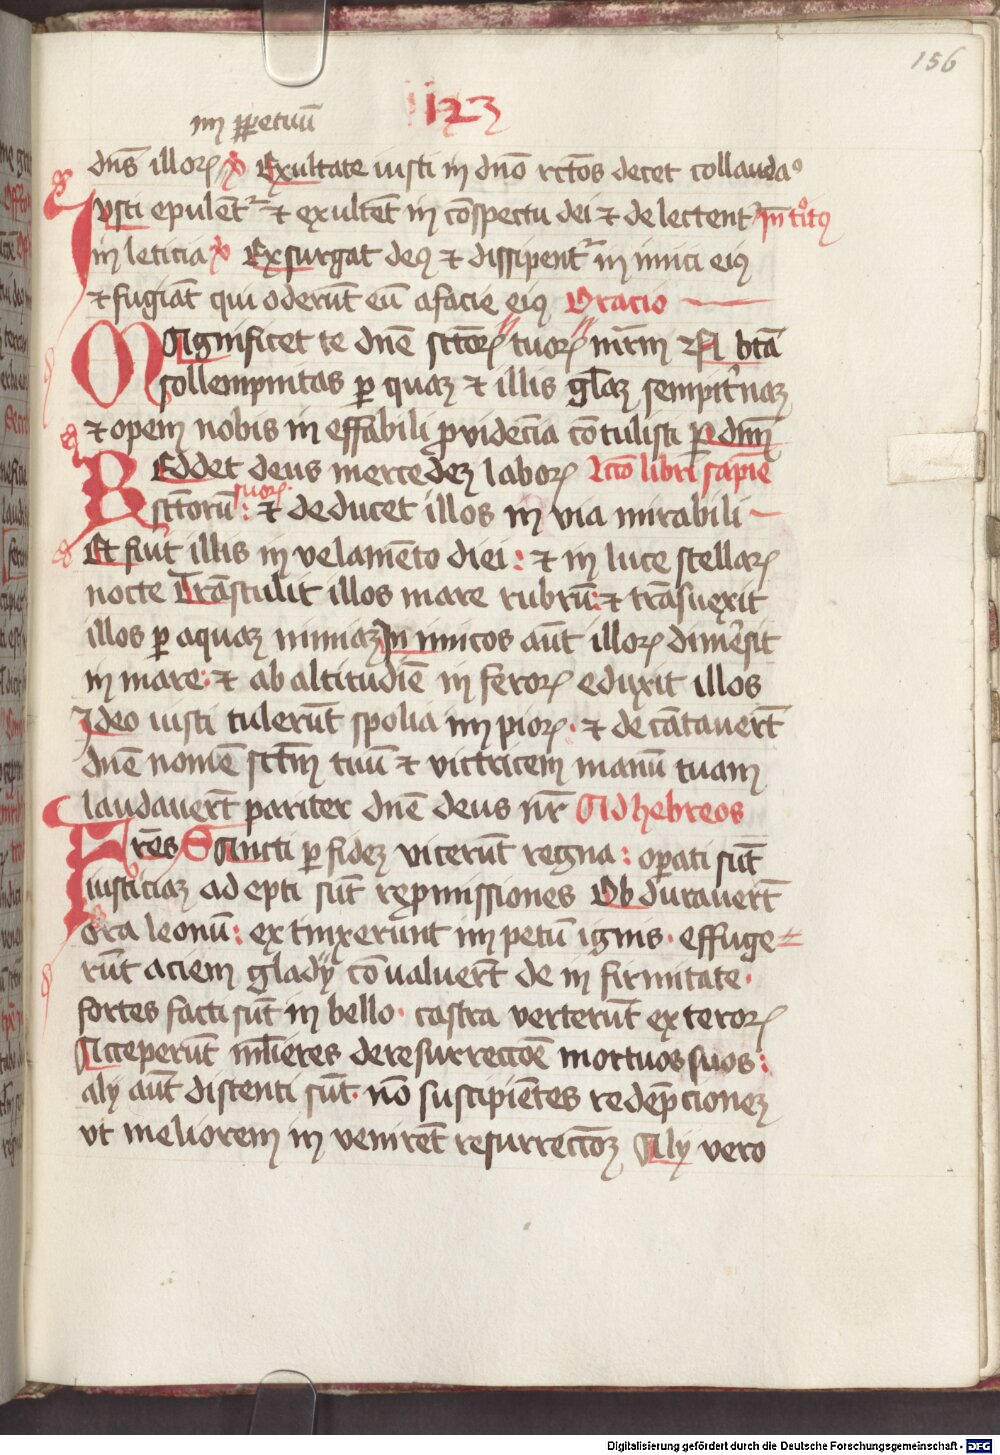 156
123
im ꝑpetuū
dn̄s illoꝝ ℣ Exultate iusti in dn̄o rctōs decet collauda
Iusti epulent̄ et exultēt in cōspectu dei et delectent̄ Intͦitꝰ
in leticia ℣ Exsurgat deꝰ et dissipent̄ in imici eiꝰ
et fugiāt qui oderūt eū a facie eiꝰ Oracio
MAgnificet te dn̄e sctōꝝ tuoꝝ btā
sollempnitas ꝑ quaʒ et illis gl̄aʒ sempit̄naʒ
et opem nobis in effabili ꝓvidēcia cōtulisti ꝑ dn̄m
REddet deus mercedeʒ laboꝝ Lcō libri sapīe
suoꝝ
sctōrū : et deducet illos in via mirabili
Et fiūt illis in velamēto diei : et in luce stellaꝝ
nocte Trāstulit illos mare rubrū : et trāsuexit
illos ꝑ aquaʒ nimiaʒ In imicos aūt illoꝝ dimēsit
in mare : et ab altitudīe in feroꝝ eduxit illos
Ideo iusti tulerūt spolia im pioꝝ · et decātauer̄t
dn̄e nomē sctm̄ tuū et victricem manū tuam
laudauer̄t pariter dn̄e deus nr̄ Ad hebreos
Frēs SAncti ꝑ fideʒ vicerūt regna : oꝑati sūt
iusticiaʒ adepti sūt reꝓmissiones Ob durauer̄t
ora leonū : extinxerunt im petū ignis · effuge
rūt aciem gladij cōvaluer̄t de in firmitate ·
fortes facti sūt in bello · castra verterūt exteroꝝ
Acceperūt ml̄ieres de resurrectōe mortuos suos :
alij aūt distenti sūt · nō suscipiētes redēpcioneʒ
vt meliorem in venirēt resurrectōeʒ Alij vero
Digitalisierung gefördert durch die Deutsche Forschungsgemeinschaft - DFG